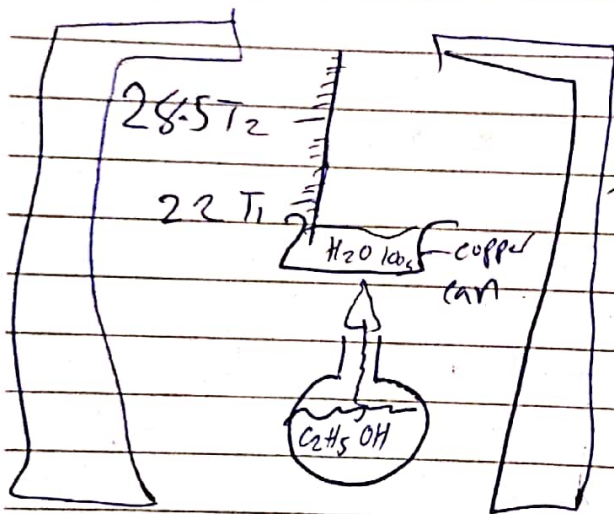 28.5 T₂
22 T₁
H₂O 100g
copper
can
C₂H₅OH